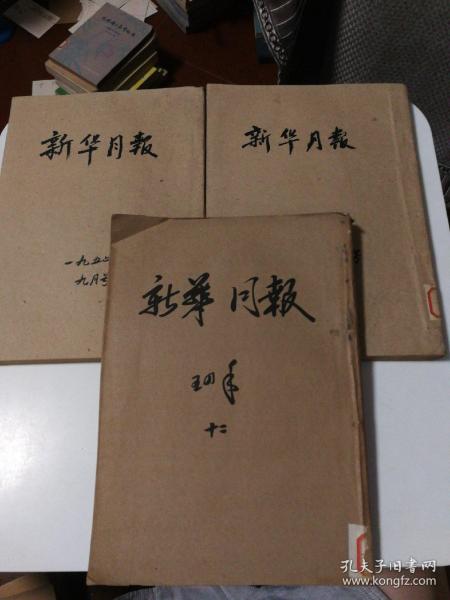 新华月報
一九五
九月号
新华月報
号
新華月報
五四年
十二
孔夫子旧书网
www.kongfz.com